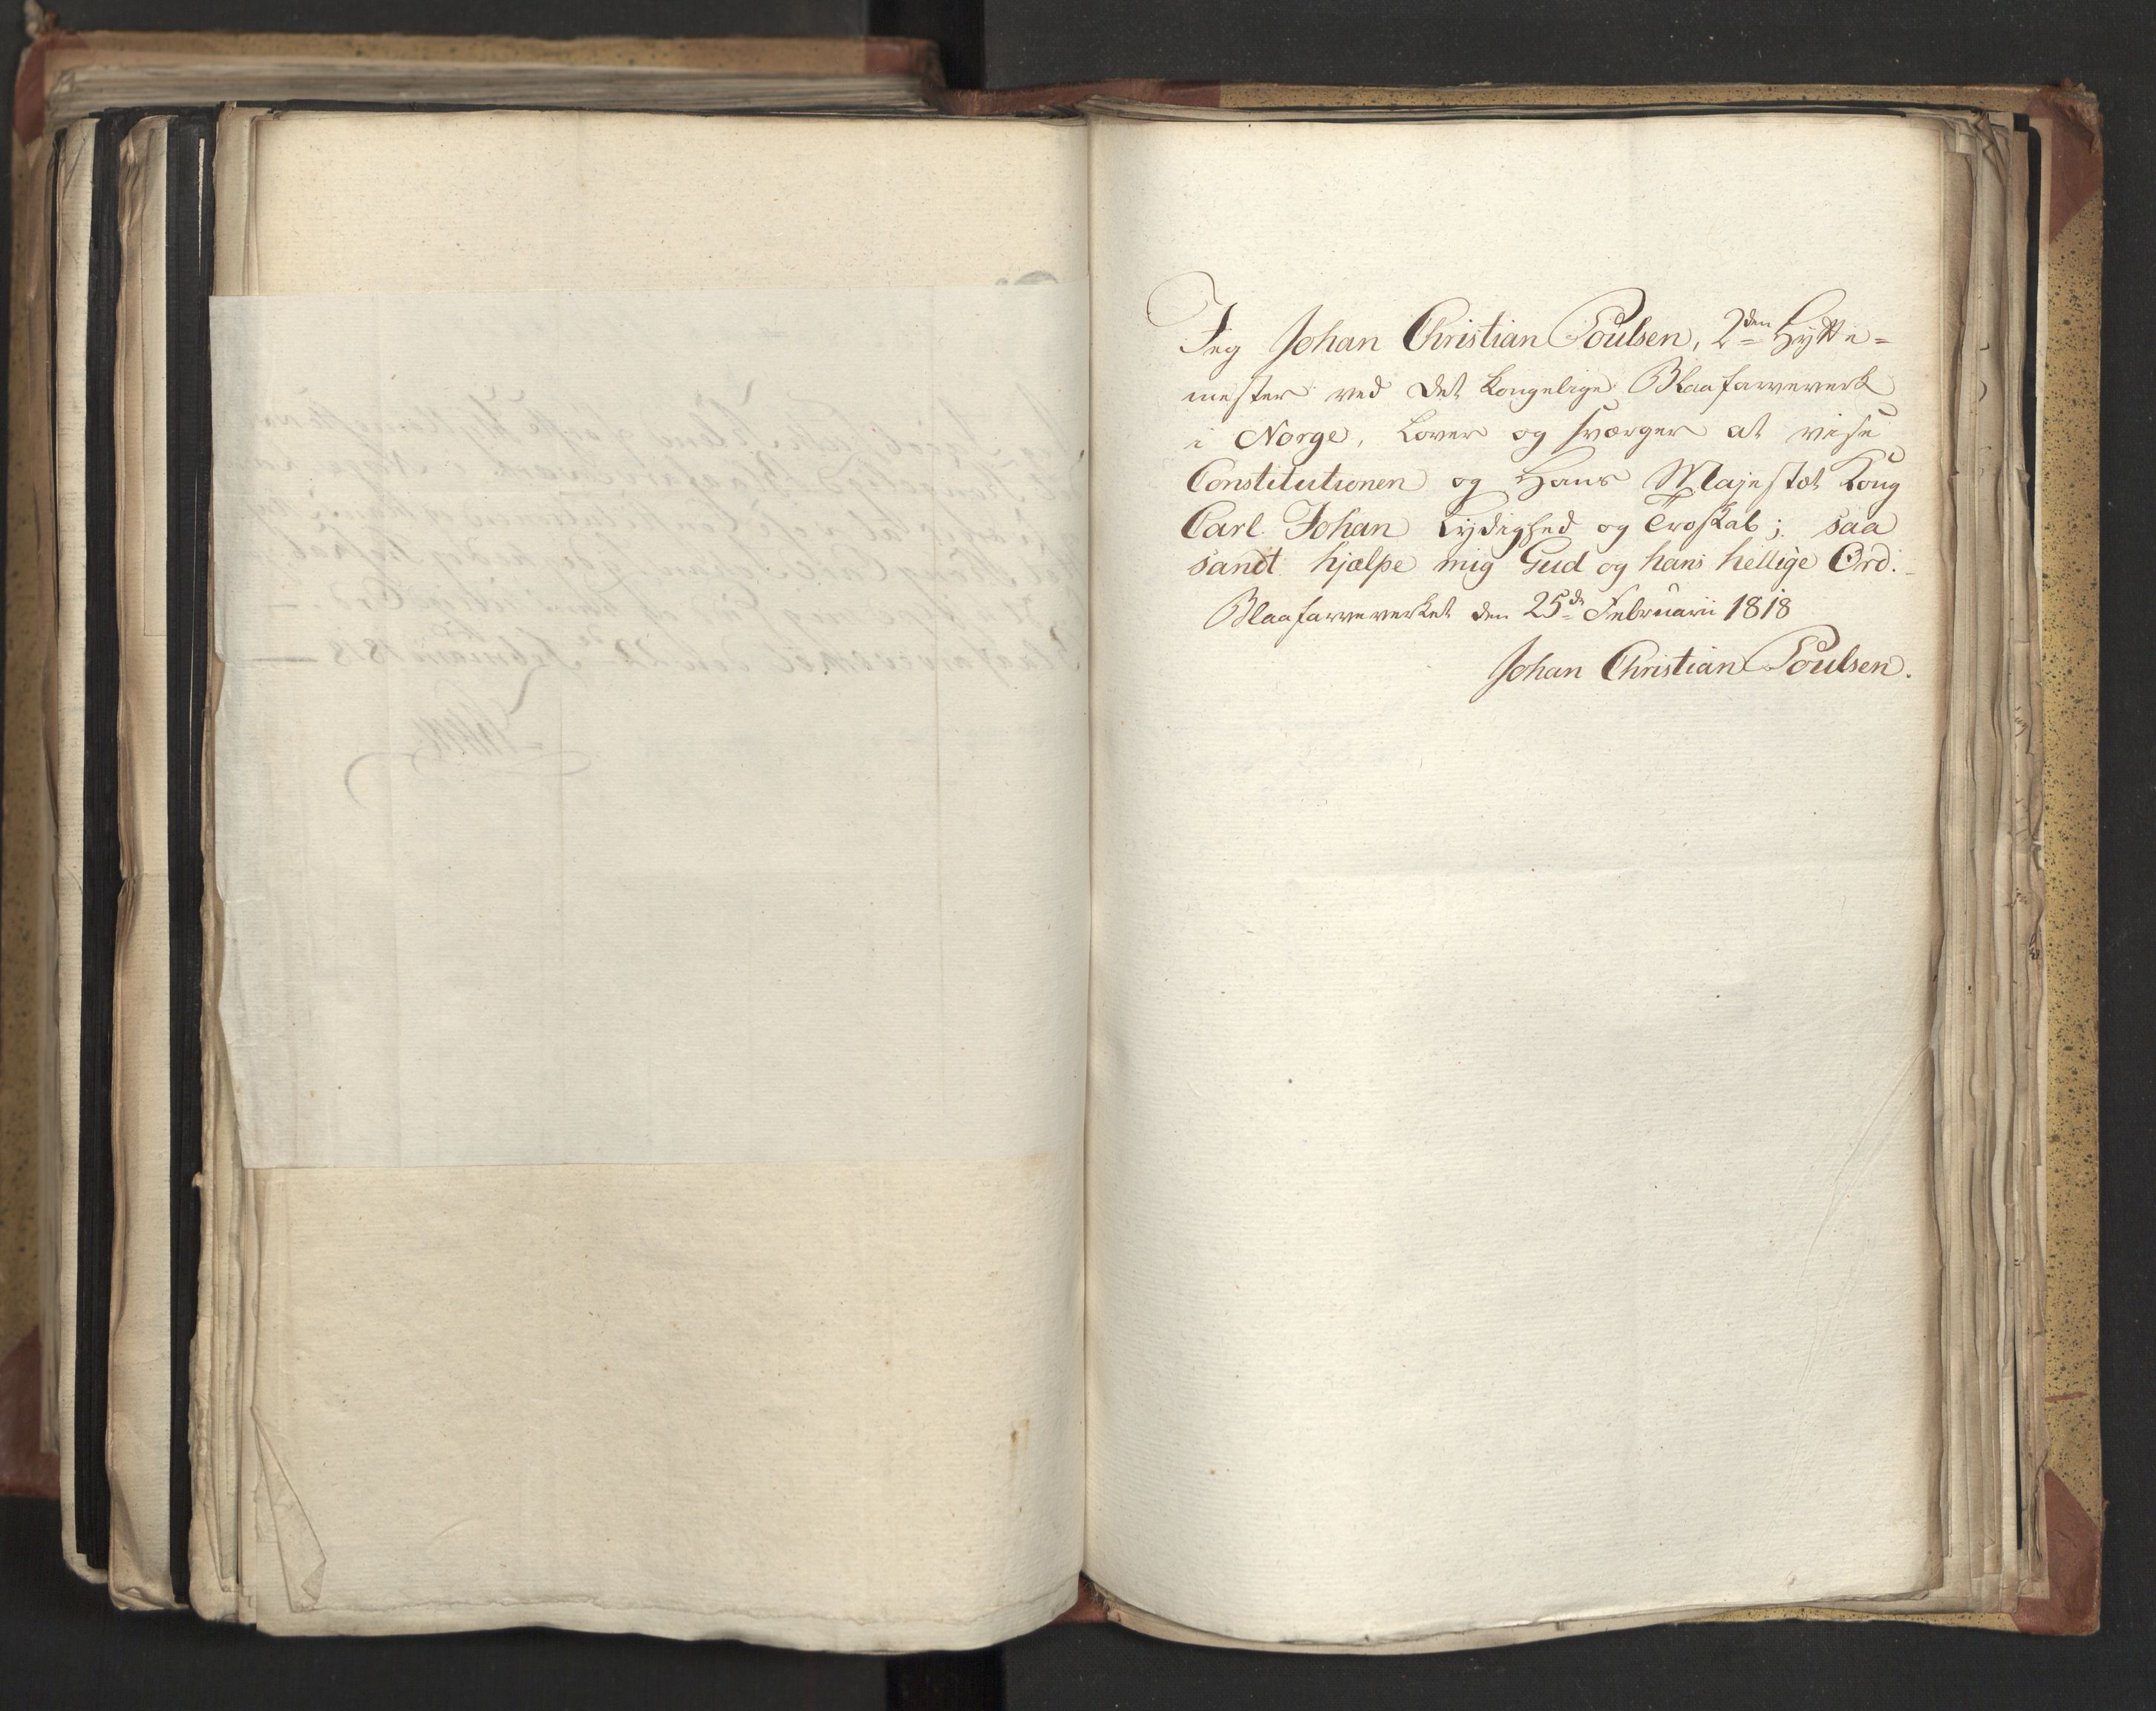 Jeg Johan Christian Poulsen, 2den Hytte=
mester ved det Kongelige Blaafarveverk
i Norge, Lover og sværger at vise
Constitutionen og Hans Majestæt Kong
Carl Johan Lydighed og Troskab; saa
sandt hjælpe mig Gud og hans hellige Ord.
Blaafarveverket den 25de Februarii 1818
Johan Christian Poulsen.